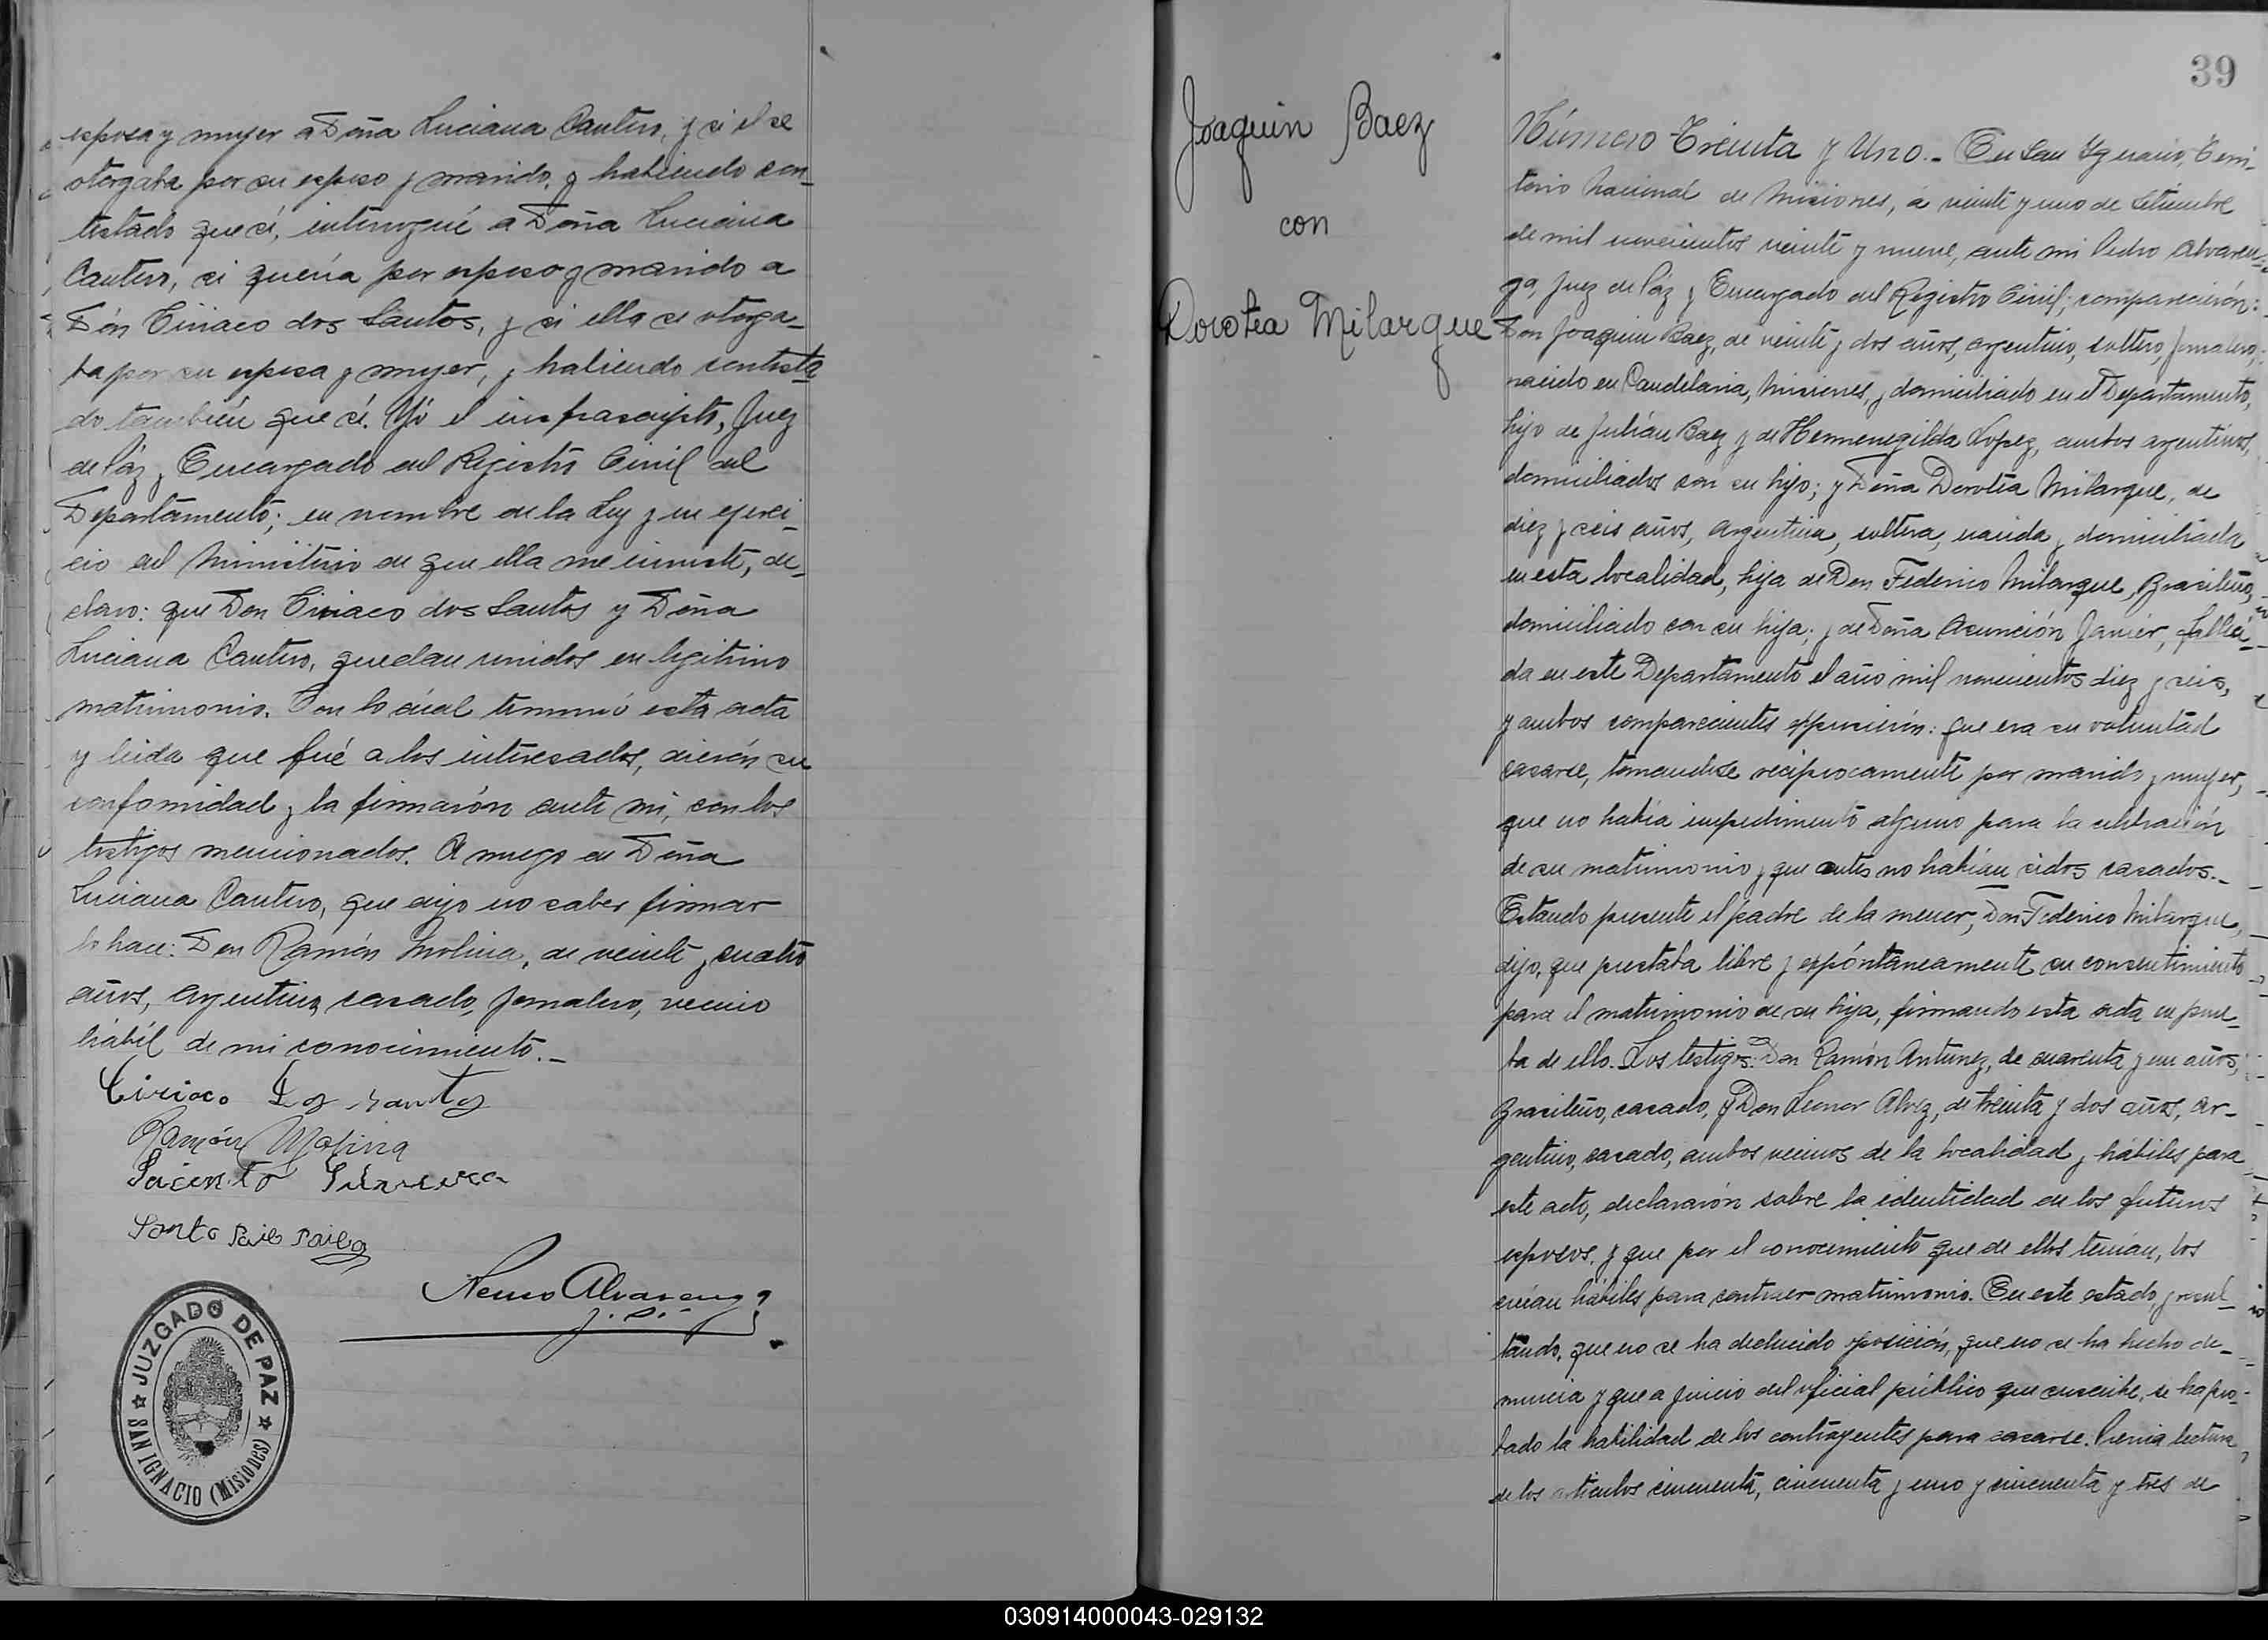 esposa y mujer a Doña Luciana Cantero, y si el se
otorgaba por su esposo y marido, y habiendo con_
testado que sí, interrogué a Doña Luciana
Cantero, si quería por esposo y marido a
Dón Ciriaco dos Santos, y si ella se otorga_
ba por su esposa y mujer, y habiendo contesta_
do también que sí. Yó el infrascripto, Juez
de Páz y Encargado del Registro Civil del
Departamento; en nombre de la Ley y en ejerci_
cio del Ministerio de que ella me inviste, de_
claro: que Don Ciriaco dos Santos y Doña
Luciana Cantero, quedan unidos en legítimo
matrimonio. Con lo cuál terminó esta acta
y leida que fué a los interesados, dierón su
conformidad y la firmarón ante mi, con los
testigos mencionados. A ruego de Doña
Luciana Cantero, que dijo no saber firmar
lo hace: Don Ramón Molina, de veinte y cuatro
años, argentino, casado, jornalero, vecino
hábil de mi conocimiento._
Ciriaco Dos Santos
Ramón Molina
Jacinto
Santo
Alvarenga
J. P.
JUZGADO DE PAZ
SAN IGNACIO (Misiones)
39
Joaquin Baez
con
Dorotea Milarque
Número Treinta y Uno._ En San Ygnacio, Terri_
torio Nacional de Misiones, á veinte y uno de Setiembre
de mil novecientos veinte y nueve, ante mi Pedro Alvaren_
ga, Juez de Páz y Encargado del Registro Civil; comparecierón:
Don Joaquin Baez, de veinte y dos años, argentino, soltero, jornalero,
nacido en Candelaria, Misiones, y domiciliado en el Departamento,
hijo de Julián Baez y de Hermenegilda Lopez, ambos argentinos,
domiciliados con su hijo; y Doña Dorotea Milarque, de
diez y seis años, argentina, soltera, nacida y domiciliada
en esta localidad, hija de Don Federico Milarque, Brasileño,
domiciliado con su hija; y de Doña Asunción Javier, falleci_
da en este Departamento el año mil novecientos diez y seis,
y ambos comparecientes expusierón: que era su voluntad
casarse, tomandose reciprocamente por marido y mujer,
que no había impedimento alguno para la celebración
de su matrimonio y que antes no habían sidos casados._
Estando presente el padre de la menor, Don Federico Milarque,
dijo, que prestaba libre y espóntaneamente su consentimiento
para el matrimonio de su hija, firmando esta acta en prue_
ba de ello. Los testigos: Don Ramón Antunez, de cuarenta y un años,
Brasileño, casado, y Don Leonor Alvez, de treinta y dos años, ar_
gentino, casado, ambos vecinos de la localidad y hábiles para
este acto, declararón sobre la identidad de los futuros
esposos, y que por el conocimiento que de ellos tenían, los
creían hábiles para contraer matrimonio. En este estado, y resul_
tando, que no se ha deducido oposición, que no se ha hecho de_
nuncia y que a juicio del oficial público que suscribe, se ha pro_
bado la habilidad de los contrayentes para casarse. Previa lectura
de los articulos cincuenta, cincuenta y uno y cincuenta y tres de
030914000043-029132